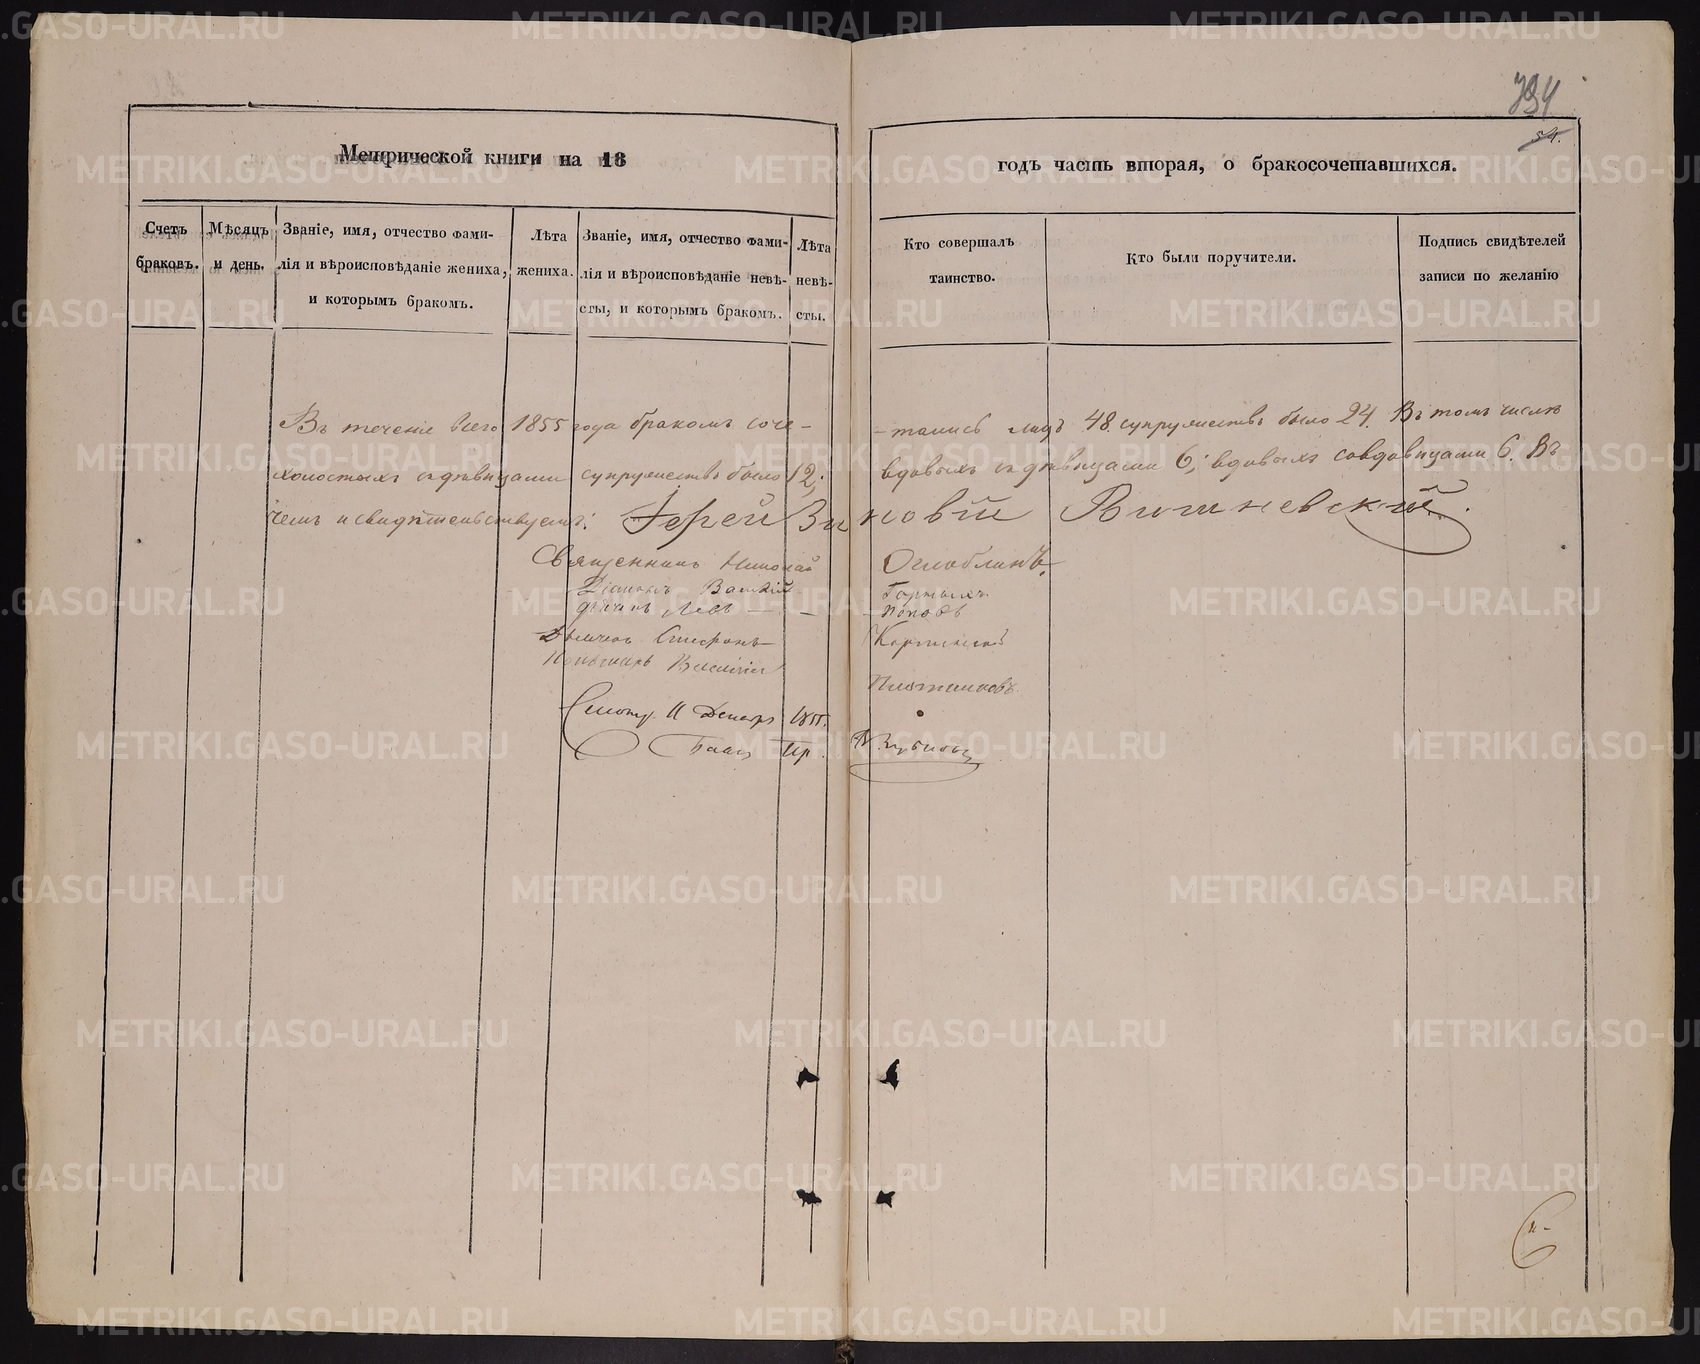 794
54.
Метрической книги на 18
годъ часть вторая, о бракосочетавшихся.
Счетъ браковъ.
Мѣсяцъ и день.
Званіе, имя, отчество фами-
лія и вѣроисповѣданіе жениха,
и которымъ бракомъ.
Лѣта жениха.
Званіе, имя, отчество фами-
лія и вѣроисповѣданіе невѣ-
сты, и которымъ бракомъ.
Лѣта невѣ-
сты.
Кто совершалъ
таинство.
Кто были поручители.
Подпись свидѣтелей
записи по желанію
Въ теченіе всего 1855 года бракомъ соче-
-тались лицъ 48. супружествъ было 24. Въ томъ числѣ
холостыхъ съ дѣвицами супружествъ было 12;
вдовыхъ съ дѣвицами 6; вдовыхъ со вдовицами 6. Въ
чемъ и свидѣтельствуемъ: Іерей Зиновій Вишневскій.
Священникъ Николай Оглоблинъ.
Діаконъ Василій
дьячекъ Левъ — — Поповъ
Дьячекъ
Пономарь Василій Плотниковъ.
11 Декабря 1855.
METRIKI.GASO-URAL.RU